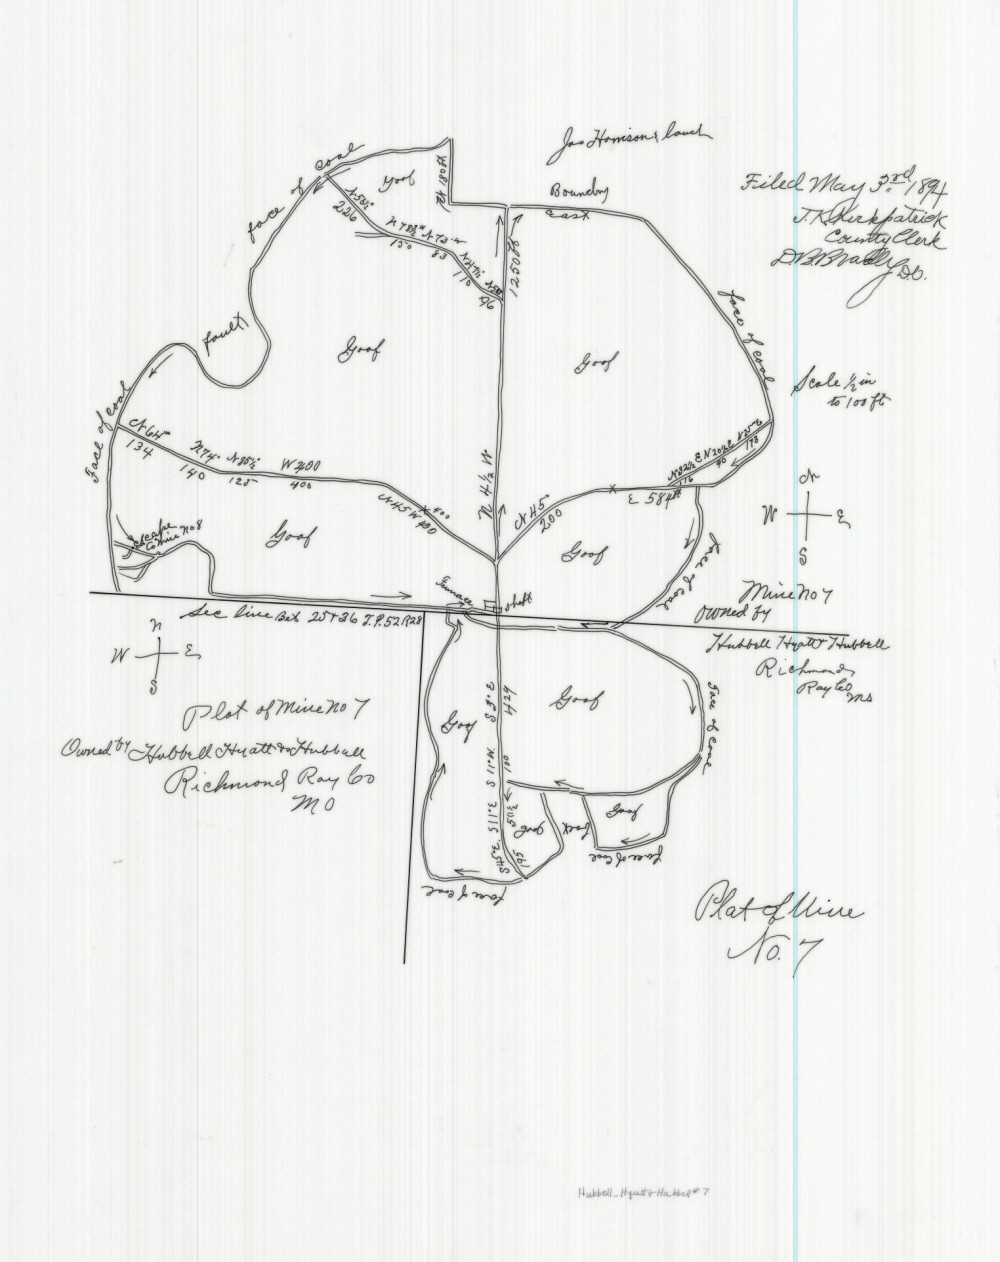 Jas Harrison's land
Filed May 3rd 1894
J. K. Kirkpatrick
County Clerk
D.B. Bradly D.C.
Face of Coal
Goof
180 ft
Boundry
East
N50½°
226
N 78½° N 73° W
150 83
N47½°
110
96
1250 ft
Face of coal
fault
Goof
Goof
Scale ½ in
to 100 ft
Face of coal
N 64°
134
N 74°
140
N 85½°
125
W 400
400
N45W 400
400
N 4½ W
N 45°
200
E 584 ft
N32½ E N20½E N25°E
116 90 178
N
W E
S
Escape
to mine No 8
Goof
Goof
face of coal
Furnace
shaft
Mine No 7
owned by
Hubbell Hyatt & Hubbell
Richmond
Ray Co
Mo
Sec line Bet 25 & 36 T.P. 52 R 28
N
W E
S
Plat of Mine No 7
Owned by Hubbell Hyatt & Hubbell
Richmond Ray Co
MO
Goof
Goof
S 3° E
429
Face of coal
S 11° W
100
S 11° E
50½
Goof
fault
Goof
S45° E
195
Face of coal
Face of coal
Plat of Mine
No. 7
Hubbell-Hyatt & Hubbell #7